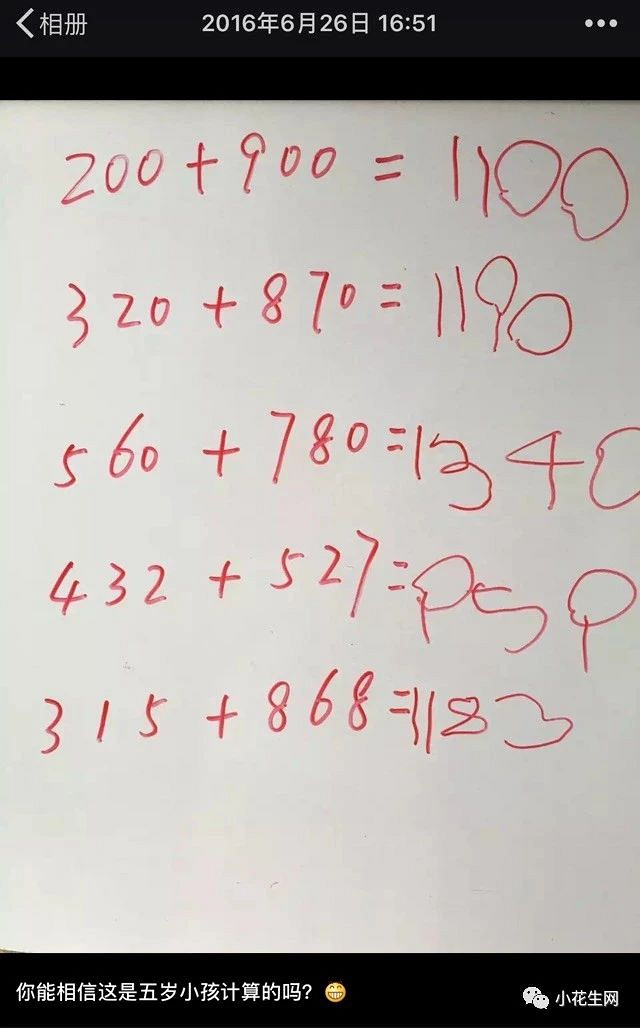 相册
2016年6月26日 16:51
200+900=1100
320+870=1190
560+780=1340
432+527=959
315+868=1183
你能相信这是五岁小孩计算的吗？😁
小花生网